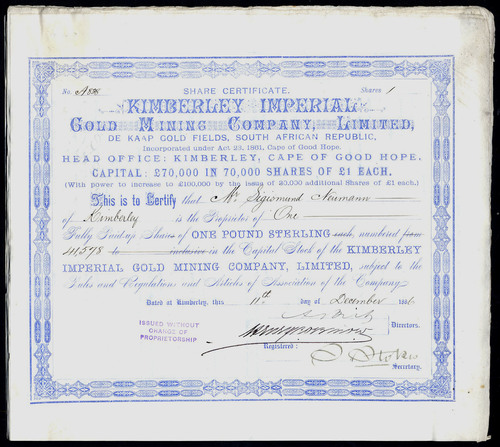 SHARE CERTIFICATE.
No. Shares 1
KIMBERLEY IMPERIAL
GOLD MINING COMPANY, LIMITED,
DE KAAP GOLD FIELDS, SOUTH AFRICAN REPUBLIC.
Incorporated under Act 23, 1861, Cape of Good Hope.
HEAD OFFICE: KIMBERLEY, CAPE OF GOOD HOPE.
CAPITAL: £70,000 IN 70,000 SHARES OF £1 EACH.
(With power to increase to £100,000 by the issue of 30,000 additional Shares of £1 each.)
This is to Certify that Mr. Sigismund Neumann
of Kimberley is the Proprietor of One
Fully Paid-up Shares of ONE POUND STERLING each, numbered from
41578 to inclusive in the Capital Stock of the KIMBERLEY
IMPERIAL GOLD MINING COMPANY, LIMITED, subject to the
Rules and Regulations and Articles of Association of the Company.
Dated at Kimberley, this 11th day of December 1886
ISSUED WITHOUT
CHANGE OF
PROPRIETORSHIP
Directors.
Registered:
Secretary.